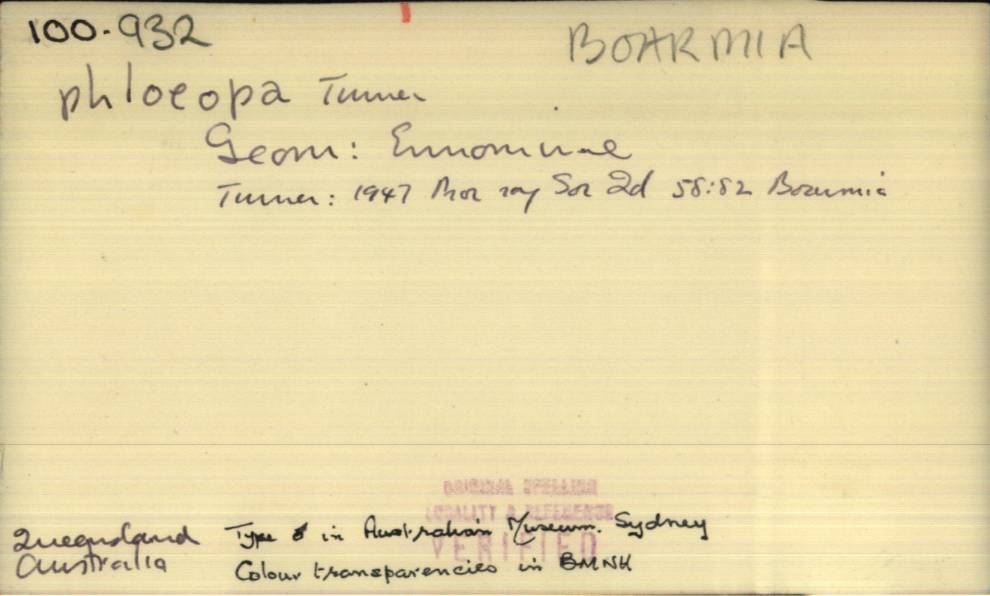 100.932
BOARMIA
phloeopa Turner
Geom: Ennominae
Turner: 1947 Proc roy Soc Qd 58:82 Boarmia
ORIGINAL SPELLING
LOCALITY & REFERENCE
VERIFIED
Queensland Australia
Type ♂ in Australian Museum. Sydney
Colour transparencies in BMNH